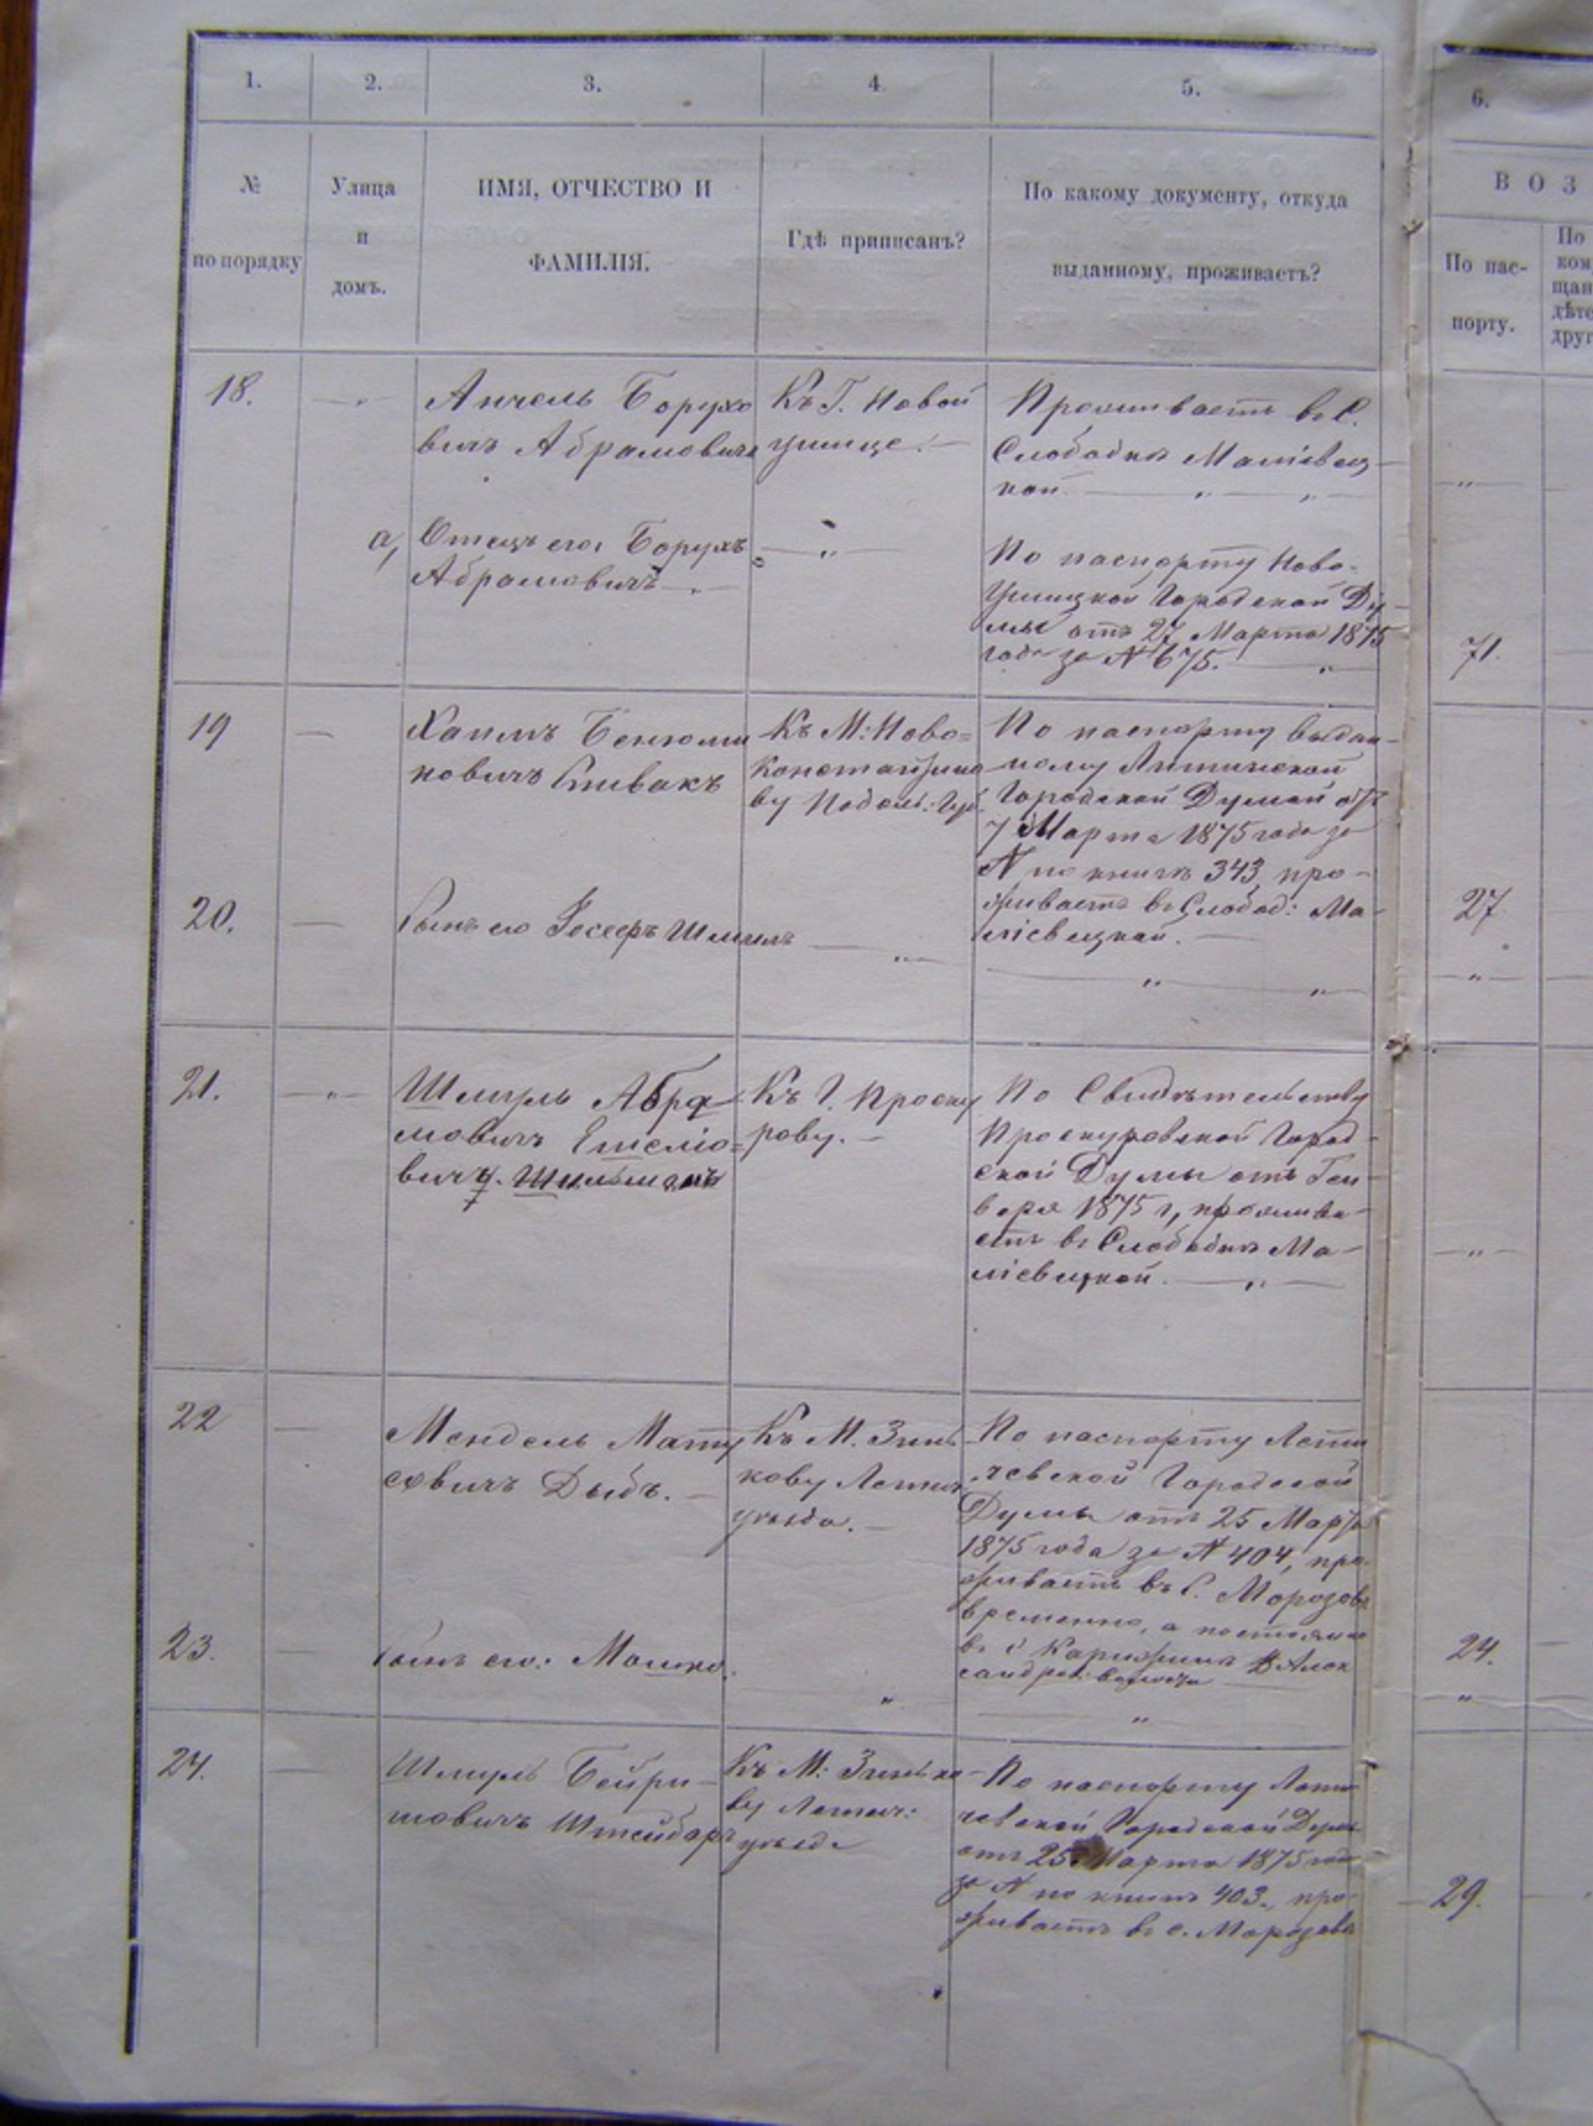 1. 2. 3. 4. 5. 6.
№ по порядку
Улица и домъ.
ИМЯ, ОТЧЕСТВО И
ФАМИЛІЯ.
Гдѣ приписанъ?
По какому документу, откуда
выданному, проживаетъ?
ВОЗ
По пас-
порту.
По
ком
щан
дѣте
друг
18.
Анчель Борухо
вичъ Абрамовичъ
Къ Г. Новой
ушице.
Проживаетъ в С.
Слободкѣ Маліевец
кой
а, Отецъ его Борухъ
Абрамовичъ
По паспорту Ново-
Ушицкой Городской Ду-
мы отъ 27 Марта 1875
года за N 675.
71.
19
Хаимъ Бенюми
новичъ Спивакъ
Къ М: Ново=
константино
ву Подольс: Губ.
По паспорту выдан-
ному Литинской
Городской Думой отъ
7 Марта 1875 года за
N по книгѣ 343, про-
живаетъ в Слобод: Ма-
ліевецкой.
27.
20.
Сынъ его Іосефъ Шмиль
21.
Шмуль Абра
мовичъ
вичъ. Шильманъ
Къ Г. Проску
рову.
По Свидѣтельству
Проскуровской Город-
ской Думы отъ Ген-
варя 1875 г, прожива-
етъ в Слободкѣ Ма-
ліевецкой.
22
Мендель Мату
совичъ Дыбъ.
Къ М. Зинь
кову Летич
уѣзда.
По паспорту Лети
чевской Городской
Думы отъ 25 Марта
1875 года за N 404, про-
живаетъ въ С. Морозовѣ
временно, а постоянно
в с
24.
23.
Сынъ его: Мошко.
24.
Шмуль Бейри-
шовичъ Штейнбаръ
Къ М: Зинько-
ву Летич:
уѣзда
По паспорту Лети
чевской Городской Думы
отъ 25 Марта 1875 года
за N по книгѣ 403, про-
живаетъ в с. Морозовѣ
29.